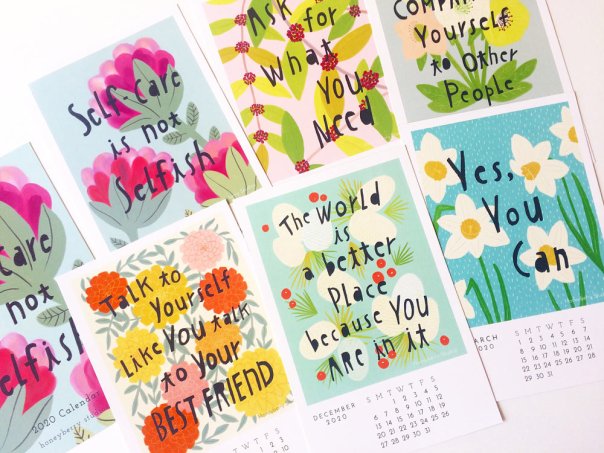 Self-Care
is not
Selfish
Ask for
what
You
Need
Yourself
to Other
People
Care
not
elfish
2020 Calendar
honeyberry
Talk to
Yourself
Like You talk
to Your
BEST FRIEND
The World
is
a better
Place
because You
are in it
DECEMBER
2020
S M T W T F S
1 2 3 4 5
6 7 8 9 10 11 12
13 14 15 16 17 18 19
20 21 22 23 24 25 26
27 28 29 30 31
Yes,
You
Can
MARCH
2020
S M T W T F S
1 2 3 4 5 6 7
8 9 10 11 12 13 14
15 16 17 18 19 20 21
22 23 24 25 26 27 28
29 30 31